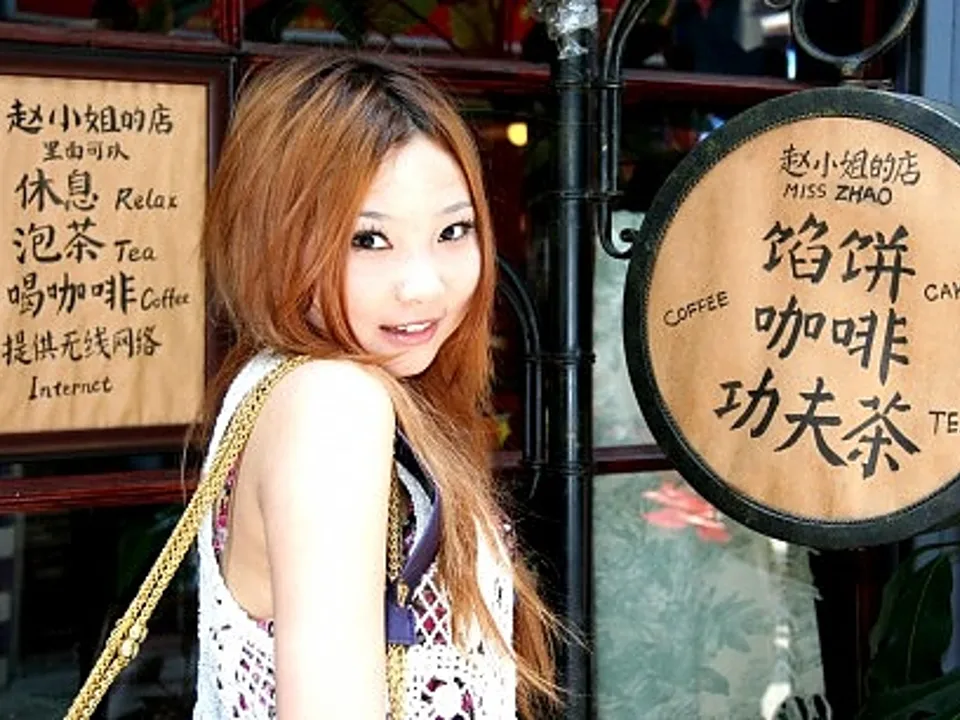 赵小姐的店
里面可以
休息 Relax
泡茶 Tea
喝咖啡 Coffee
提供无线网络
Internet
赵小姐的店
MISS ZHAO
馅饼
COFFEE
咖啡
功夫茶